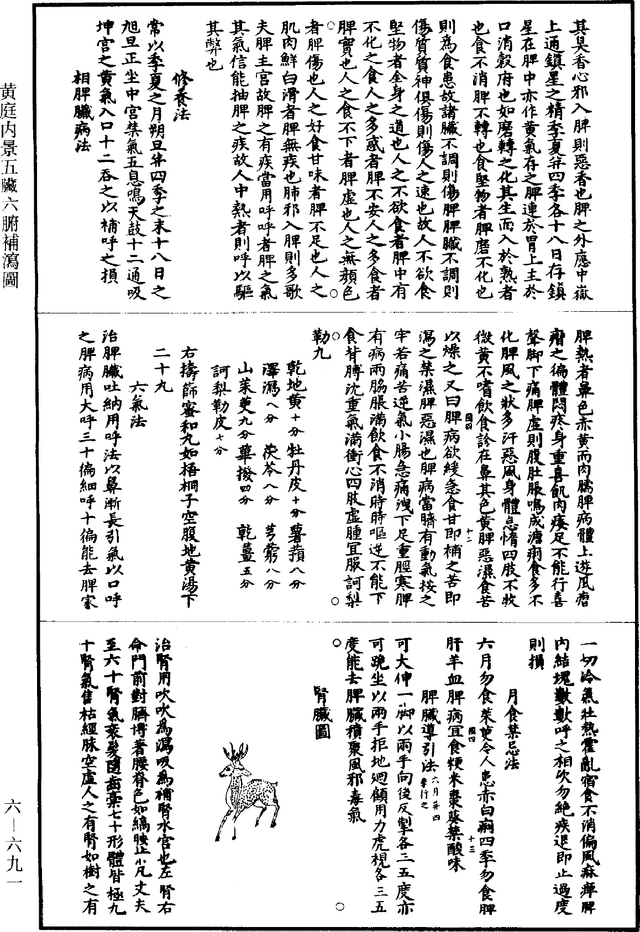 黃庭內景五臟六腑補瀉圖
其臭香心邪入脾則惡香也脾之外應中嶽
上通鎮星之精季夏并四季各十八日存鎮
星在脾中亦作黃氣存之脾連於胃上主於
口消穀府也如磨轉之化其生而入於熟者
也食不消脾不轉也食堅物者脾磨不化也
則為食患故諸臟不調則傷脾脾臟不調則
傷質質神俱傷則傷人之速也故人不欲食
堅物者全身之道也人之不欲食者脾中有
不化之食人之多惑者脾不安人之多食者
脾實也人之食不下者脾虛也人之無顏色
者脾傷也人之好食甘味者脾不足也人之
肌肉鮮白滑者脾無疾也肺邪入脾則多歌
夫脾主宮故脾之有疾當用呼呼者脾之氣
其氣信能抽脾之疾故人中熱者則呼以驅
其弊也
修養法
常以季夏之月朔旦并四季之末十八日之
旭旦正坐中宮禁氣五息鳴天鼓十二通吸
坤宮之黃氣入口十二吞之以補呼之損
相脾臟病法
脾熱者鼻色赤黃而肉臑脾病體上遊風㾦
㾦之徧體悶疼身重喜飢肉痿足不能行喜
聲脚下痛脾虛則腹肚脹鳴成溏痢食多不
化脾風之狀多汗惡風身體怠惰四肢不收
微黃不嗜飲食診在鼻其色黃脾惡濕食苦
以燥之又曰脾病欲緩急食甘即補之苦即
瀉之禁濕脾惡濕也脾病當臍有動氣按之
牢若痛苦逆氣小腸急痛洩下足重脛寒脾
有病兩脇脹滿飲食不消時時嘔逆不能下
食背膊沈重氣滿衝心四肢虛腫宜服訶梨
勒丸
乾地黃十分 牡丹皮十分 薯蕷八分
澤瀉八分 茯苓八分 芎藭八分
山茱萸九分 蓽撥四分 乾薑五分
訶梨勒皮七分
右擣篩蜜和丸如梧桐子空腹地黃湯下
二十丸
六氣法
治脾臟吐納用呼法以鼻漸長引氣以口呼
之脾病用大呼三十徧細呼十徧能去脾家
一切冷氣壯熱霍亂宿食不消偏風麻痺脾
內結塊數數呼之相次勿絕疾退即止過度
則損
月食禁忌法
六月勿食茱萸令人患赤白痢四季勿食脾
肝羊血脾病宜食粳米棗葵禁酸味
脾臟導引法六月并四季行之
可大伸一脚以兩手向後反掣各三五度亦
可跪坐以兩手拒地廻顧用力虎視各三五
度能去脾臟積聚風邪毒氣
腎臟圖
治腎用吹吹為瀉吸為補腎水宮也左腎右
命門前對臍博著腰脊色如縞映小凡丈夫
至六十腎氣衰髮墮齒槀七十形體皆極九
十腎氣焦枯經脉空虛人之有腎如樹之有
六—六九一